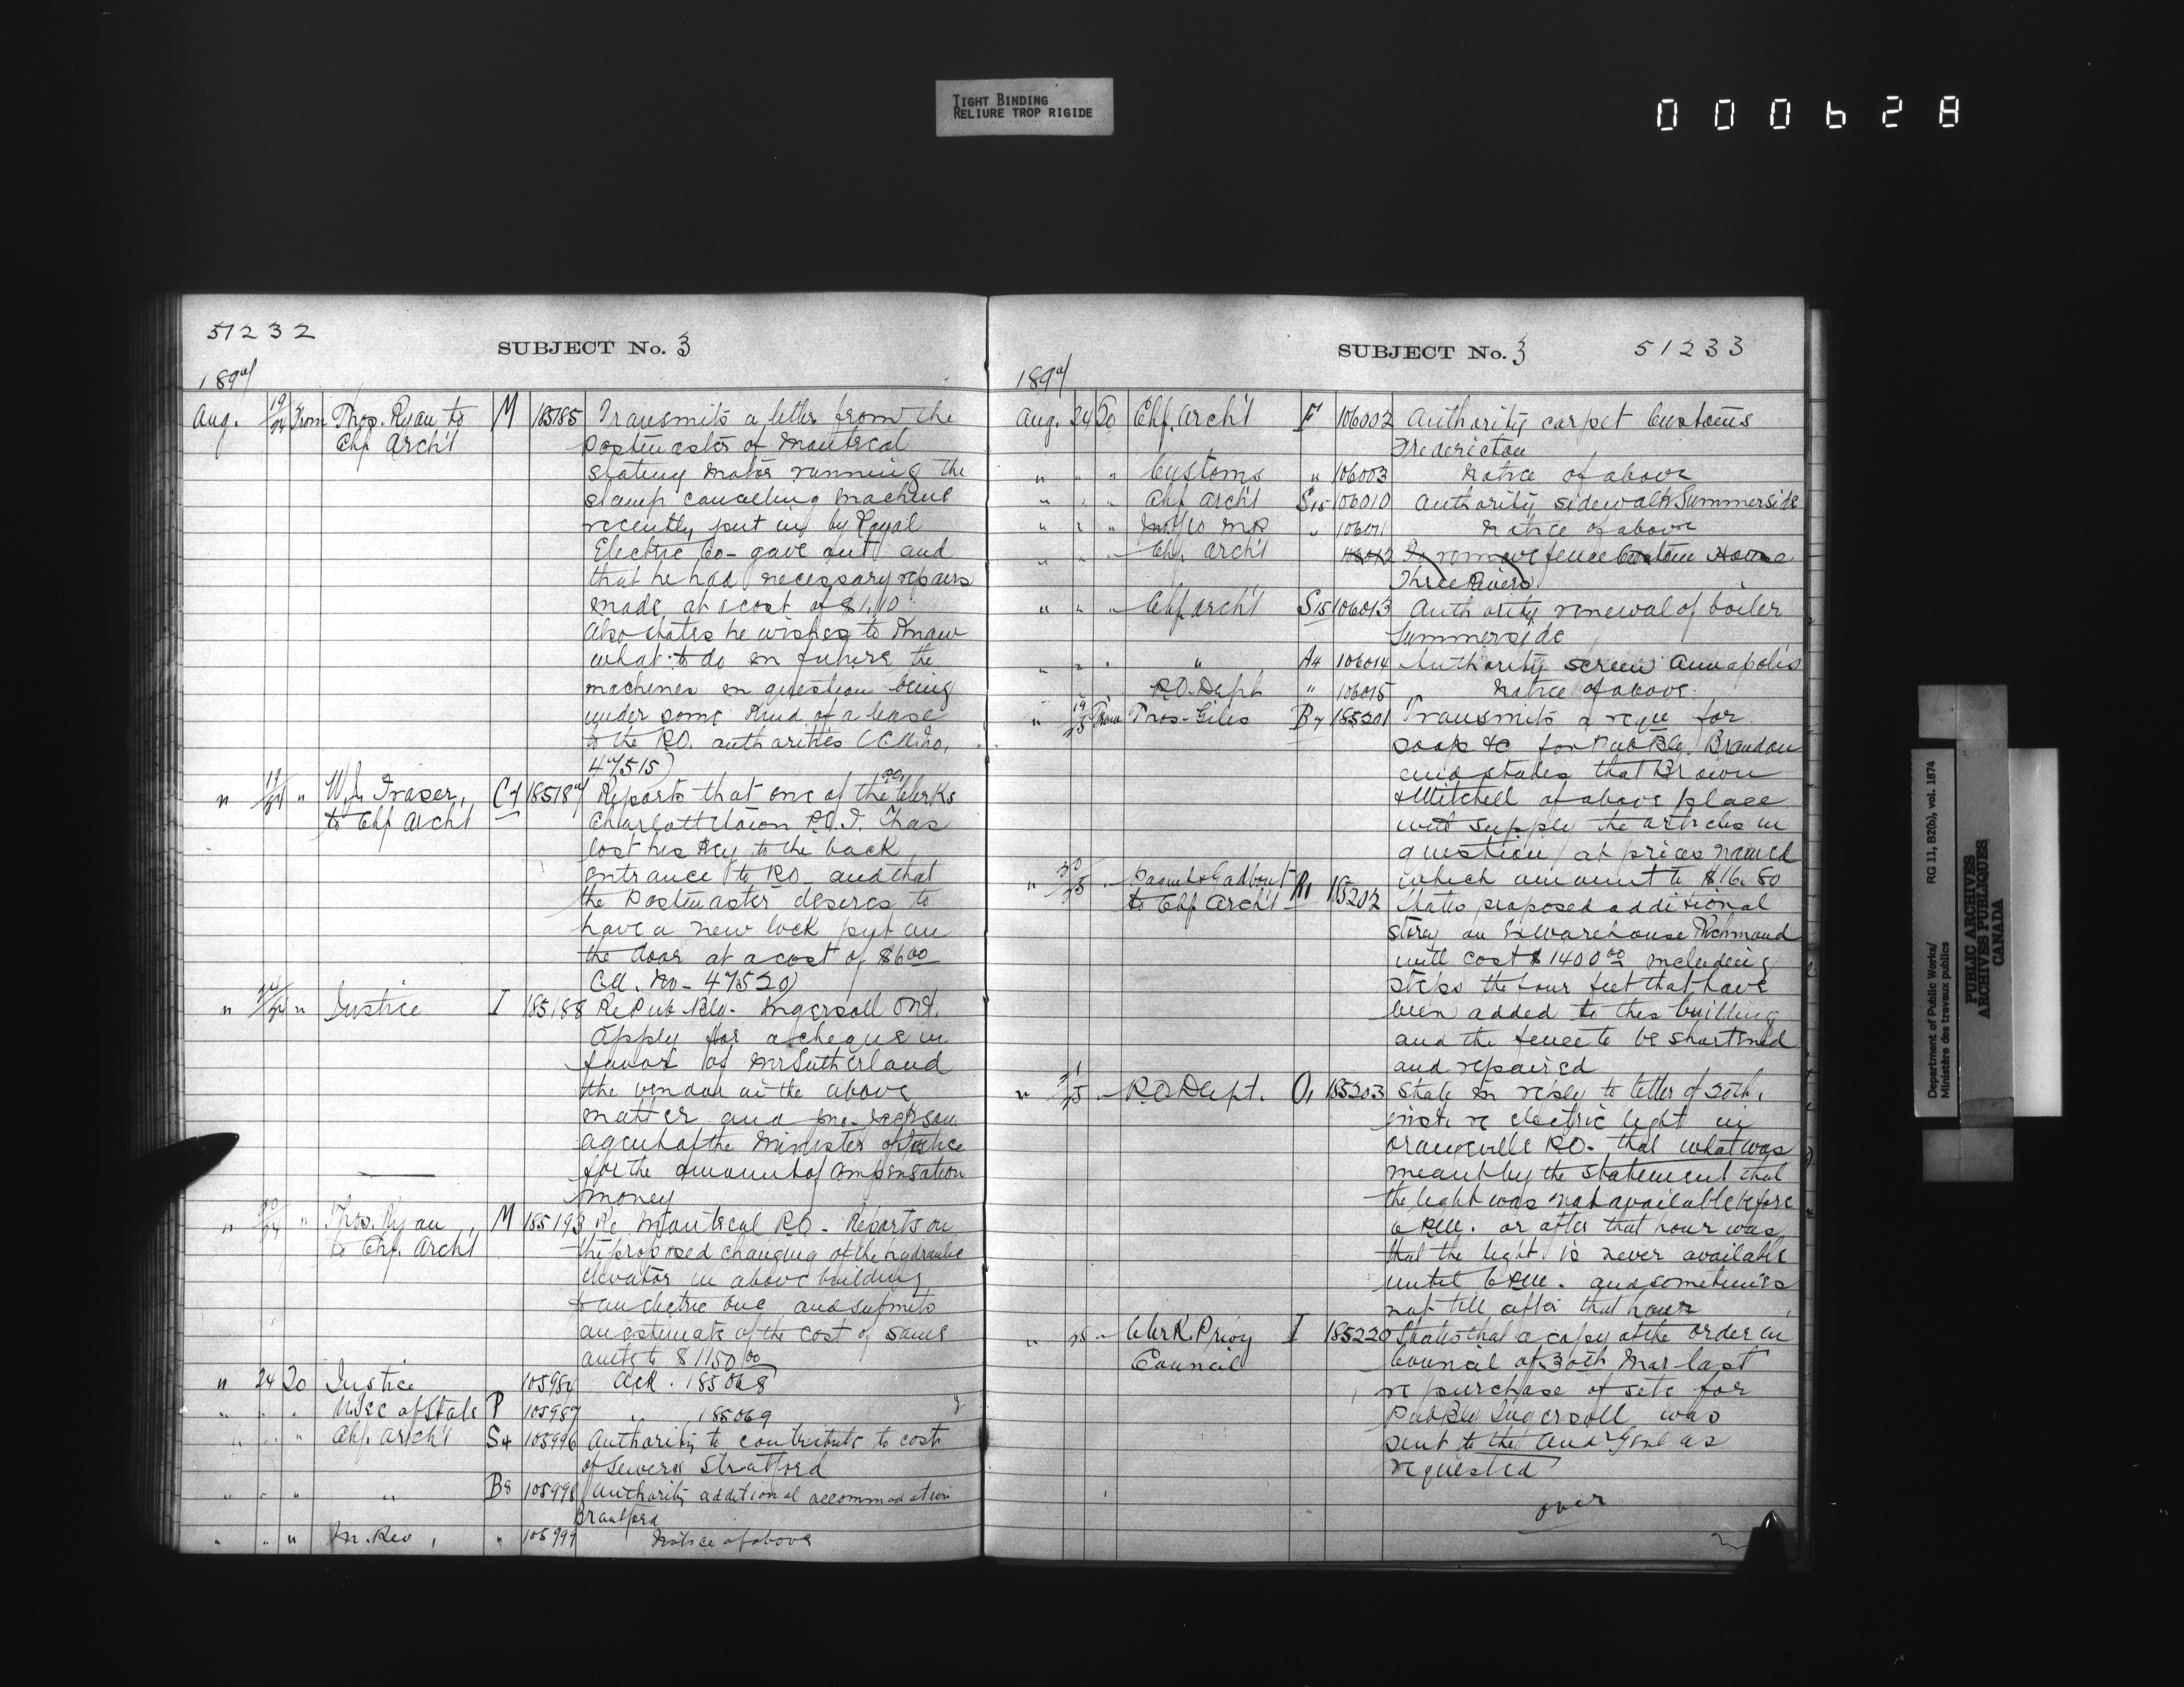 TIGHT BINDING
RELIURE TROP RIGIDE
000628
51232
SUBJECT No. 3
1897
Aug. 19/24 From Thos. Ryan to M 185185 Transmits a letter from the
Chf Arch't Postmaster of Montreal
stating motor running the
stamp cancelling machine
recently put in by Royal
Electric Co - gave out and
that he had necessary repairs
made, at a cost of $1.10
Also states he wishes to know
what to do in future the
machines in question being
under some kind of a lease
to the P.O. authorities
47515)
" 19/24 " W.J. Fraser, C4 185187 Reports that one of the P.O. Clerks
to Chf Arch't Charlottetown P.E.I. has
lost his key to the back
entrance to P.O. and that
the Postmaster desires to
have a new lock put on
the door at a cost of $6.00
47520)
" 24/24 " Justice I 185188 Re Pub. Bldg. Ingersoll Ont.
Apply for a cheque in
favor of Mr Sutherland
the vendor in the above
matter and
agent of the Minister of Justice
for the amount of compensation
money
" 20/24 " Thos. Ryan M 185193 Re Montreal P.O. - Reports on
to Chf. Arch't the proposed changing of the hydraulic
elevator in above building
to an electric one and submits
an estimate of the cost of same
amtg to $1150.00
" 24 20 Justice 105984 Ack. 185068
" " " U. Sec of State P 105987 " 185069
" " " Chf. Arch't S4 105996 Authority to contribute to cost
of Sewers Stratford
" " " " B8 105998 Authority additional accommodation
Brantford
" " " In. Rev, " 105999 Notice of above
SUBJECT No. 3 51233
1897
Aug. 24 20 Chf. Arch't F 106002 Authority carpet Customs
Fredericton
" " " Customs " 106003 Notice of above
" " " Chf Arch't S15 106010 Authority sidewalk Summerside
" " " 106011 Notice of above
" " " Chf. Arch't 106012 To remove fence Custom House
Three Rivers
" " " Chf Arch't S15 106013 Authority renewal of boiler
Summerside
" " " " A4 106014 Authority screen Annapolis
P.O. Dept " 106015 Notice of above
" 19/25 From Thos. Giles B7 185201 Transmits a requ for
soap &c for Pub Bldg. Brandon
and states that Brown
& Mitchell of above place
will supply the articles in
question at prices named
which amount to $16.80
" 20/25 " Paquet & Godbout R1 185202 States proposed additional
to Chf Arch't storey on Ex Warehouse Richmond
will cost $1400.00 including
steps the four feet that have
been added to this building
and the fence to be shortened
and repaired
" 21/25 " P.O. Dept. O1 185203 State in reply to letter of 20th.
inst. re electric light in
Orangeville P.O. that what was
meant by the statement that
the light was not available before
6 P.M. or after that hour was
that the light is never available
until 6 P.M. and sometimes
not till after that hour
" 25 " Clerk Privy I 185220 States that a copy of the order in
Council Council of 30th Mar last
re purchase of site for
Pub Bldg Ingersoll was
sent to the Aud Genl as
requested
over
Department of Public Works/ RG 11, B2(b), vol. 1874
Ministère des travaux publics
PUBLIC ARCHIVES
ARCHIVES PUBLIQUES
CANADA